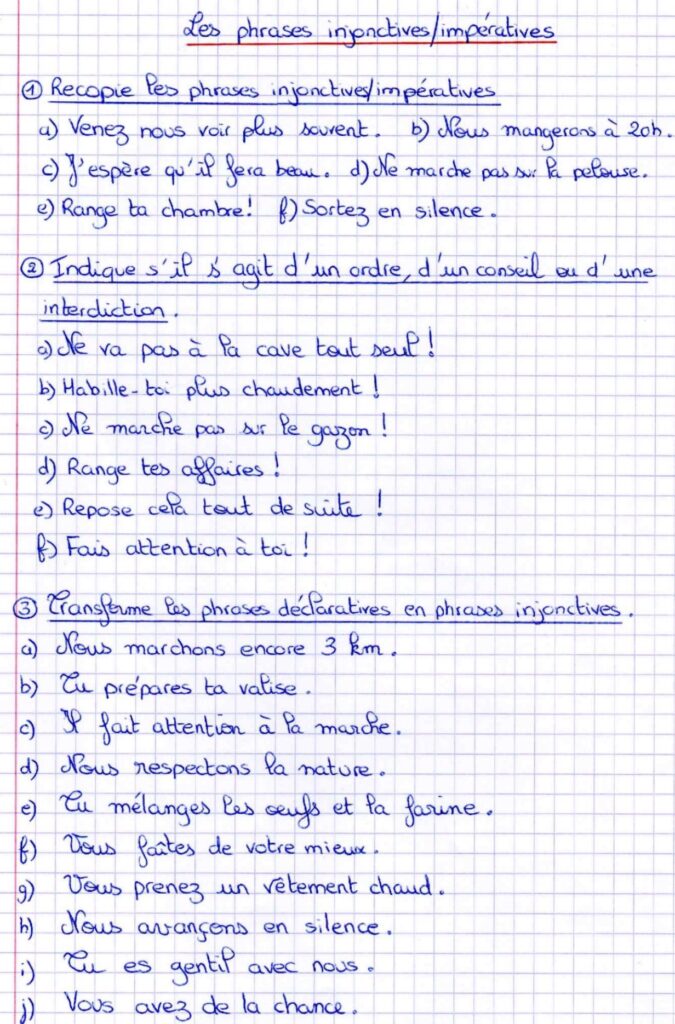 Les phrases injonctives/impératives
① Recopie les phrases injonctives/impératives
a) Venez nous voir plus souvent. b) Nous mangerons à 20h.
c) J'espère qu'il fera beau. d) Ne marche pas sur la pelouse.
e) Range ta chambre! f) Sortez en silence.
② Indique s'il s'agit d'un ordre, d'un conseil ou d'une
interdiction.
a) Ne va pas à la cave tout seul!
b) Habille-toi plus chaudement!
c) Ne marche pas sur le gazon!
d) Range tes affaires!
e) Repose cela tout de suite!
f) Fais attention à toi!
③ Transforme les phrases déclaratives en phrases injonctives.
a) Nous marchons encore 3 km.
b) Tu prépares ta valise.
c) Il fait attention à la marche.
d) Nous respectons la nature.
e) Tu mélanges les oeufs et la farine.
f) Vous faîtes de votre mieux.
g) Vous prenez un vêtement chaud.
h) Nous avançons en silence.
i) Tu es gentil avec nous.
j) Vous avez de la chance.